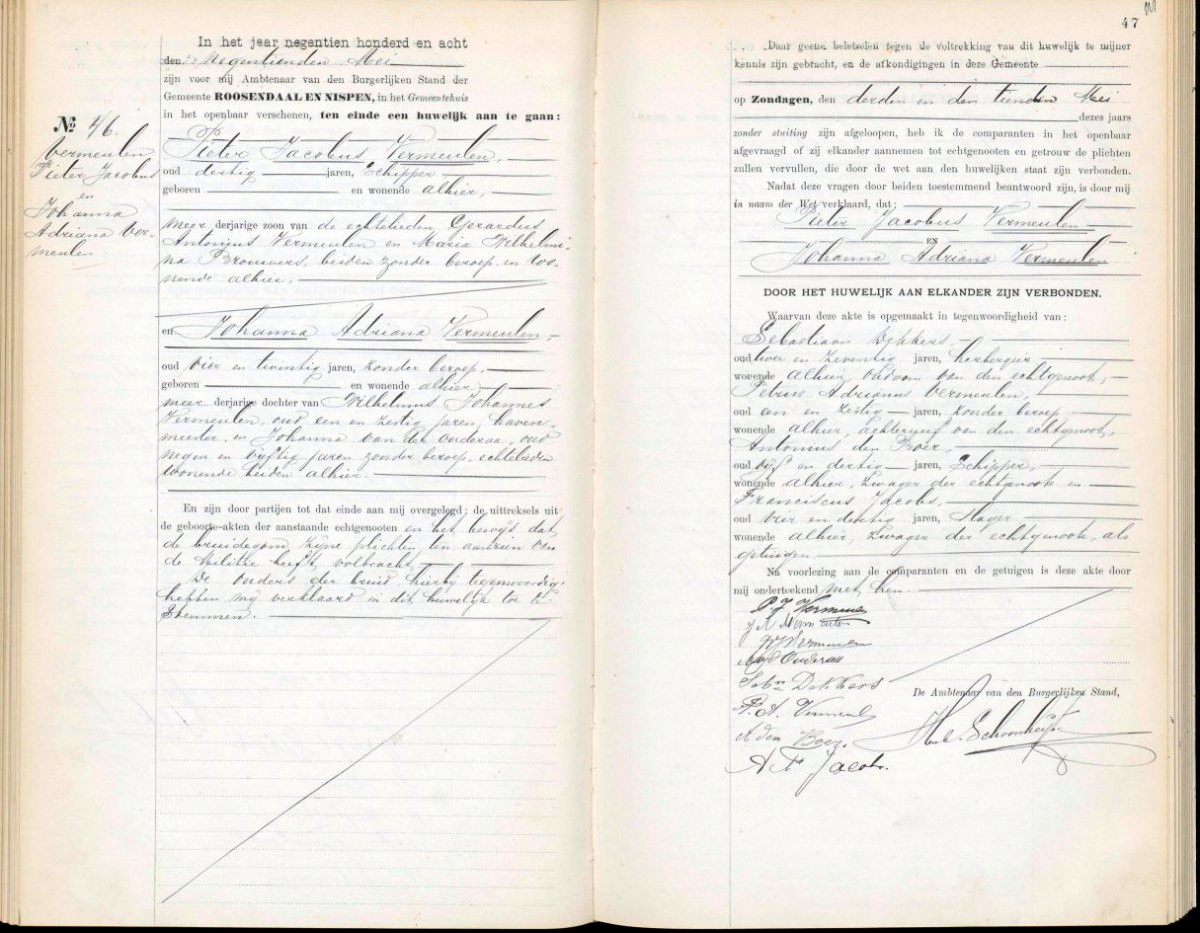 In het jaar negentien honderd en acht
den negentienden Mei
zijn voor mij Ambtenaar van den Burgerlijken Stand der
Gemeente ROOSENDAAL EN NISPEN, in het Gemeentehuis
in het openbaar verschenen, ten einde een huwelijk aan te gaan:
№ 46.
Vermeulen
Pieter Jacobus
en
Johanna
Adriana Ver-
meulen.
Pieter Jacobus Vermeulen,
oud dertig jaren, Schipper
geboren en wonende alhier,
meerderjarige zoon van de echtelieden Gerardus
Antonius Vermeulen en Maria Wilhelmi-
na Brouwers, beiden zonder beroep en wo-
nende alhier,
en Johanna Adriana Vermeulen
oud vier en twintig jaren, zonder beroep,
geboren en wonende alhier
meerderjarige dochter van Wilhelmus Johannes
Vermeulen, oud een en zestig jaren, haven-
meester, en Johanna van der Ouderaa, oud
negen en vijftig jaren zonder beroep, echtelieden
wonende beiden alhier.
En zijn door partijen tot dat einde aan mij overgelegd: de uittreksels uit
de geboorte-akten der aanstaande echtgenooten en het bewijs dat
de bruidegom zijne plichten ten aanzien van
de Militie heeft volbracht.
De ouders der bruid hierbij tegenwoordig
hebben mij verklaard in dit huwelijk toe te
stemmen.
47
Daar geene beletselen tegen de voltrekking van dit huwelijk te mijner
kennis zijn gebracht, en de afkondigingen in deze Gemeente
op Zondagen, den derden en den tienden Mei
dezes jaars
zonder stuiting zijn afgeloopen, heb ik de comparanten in het openbaar
afgevraagd of zij elkander aannemen tot echtgenooten en getrouw de plichten
zullen vervullen, die door de wet aan den huwelijken staat zijn verbonden.
Nadat deze vragen door beiden toestemmend beantwoord zijn, is door mij
in naam der Wet verklaard, dat:
Pieter Jacobus Vermeulen
EN
Johanna Adriana Vermeulen
DOOR HET HUWELIJK AAN ELKANDER ZIJN VERBONDEN.
Waarvan deze akte is opgemaakt in tegenwoordigheid van:
Sebastiaan Dekkers,
oud twee en zeventig jaren, herbergier
wonende alhier, oudoom van den echtgenoot,
Petrus Adrianus Vermeulen,
oud een en zestig jaren, zonder beroep
wonende alhier, achterneef van den echtgenoot,
Antonius den Boer,
oud vijf en dertig jaren, Schipper,
wonende alhier, zwager der echtgenoote en
Franciscus Jacobs,
oud vier en dertig jaren, Slager
wonende alhier, zwager der echtgenoote, als
getuigen.
Na voorlezing aan de comparanten en de getuigen is deze akte door
mij onderteekend met hen.
P. J. Vermeulen
J A Vermeulen
W J Vermeulen
vd Ouderaa
Sebn Dekkers
De Ambtenaar van den Burgerlijken Stand,
P. A. Vermeulen
A den Boer.
Schoonheijt
Jacobs.